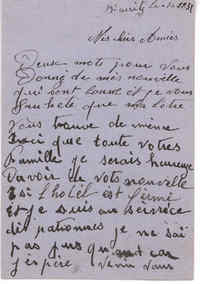 Biarritz le
Mes chers Amies
Deux mots pour vous
Donné de mes nouvelle
qui sont bonne et je vous
souhaite que ma lettre
vous trouve de même
que toute votres
famille je serais heureuse
davoir de vots nouvelle
si L'hotel est fermé
et je suis au service
des patronnes je ne sai
pas plus car
j'espère venir vous